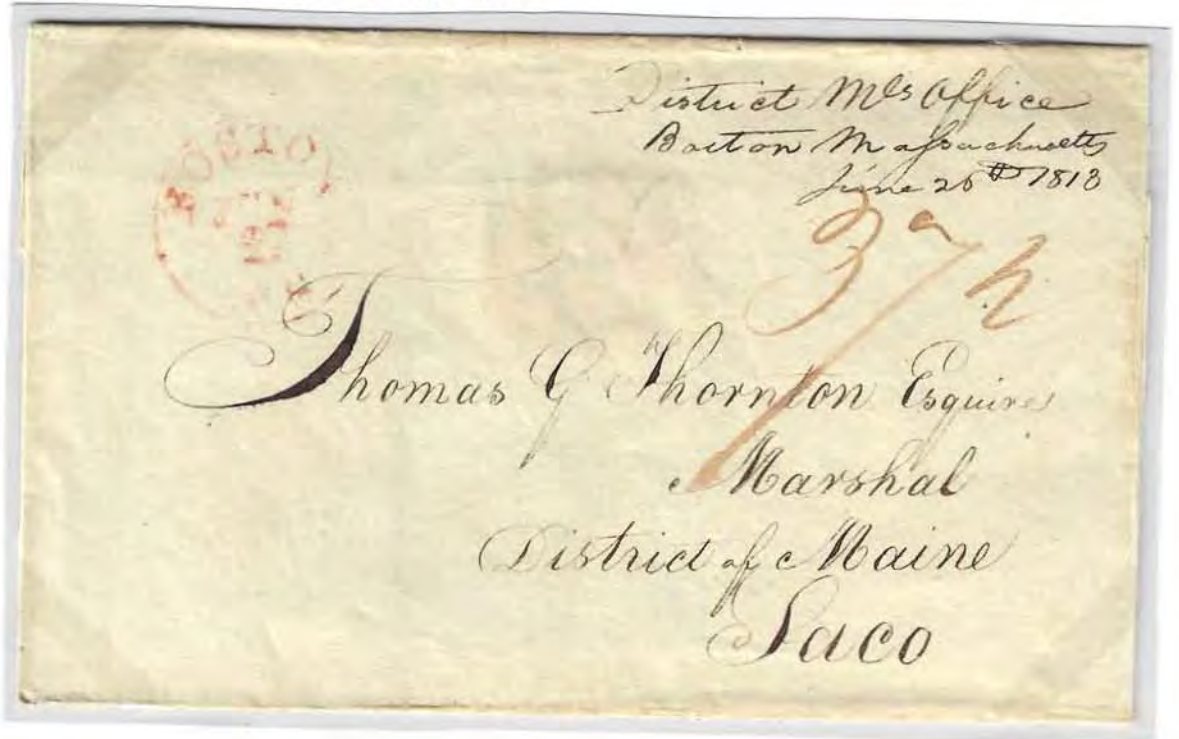 District Mls Office
Boston Massachusetts
June 25th 1813
BOSTO
JUN
37 ½
Thomas G Thornton Esquire
Marshal
District of Maine
Saco